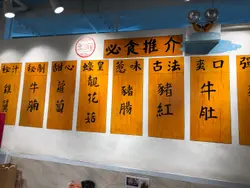 必食推介
秘汁
秘制
牛腩
甜心
蘿蔔
蠔皇
靚花菇
惹味
豬腸
古法
豬紅
爽口
牛肚